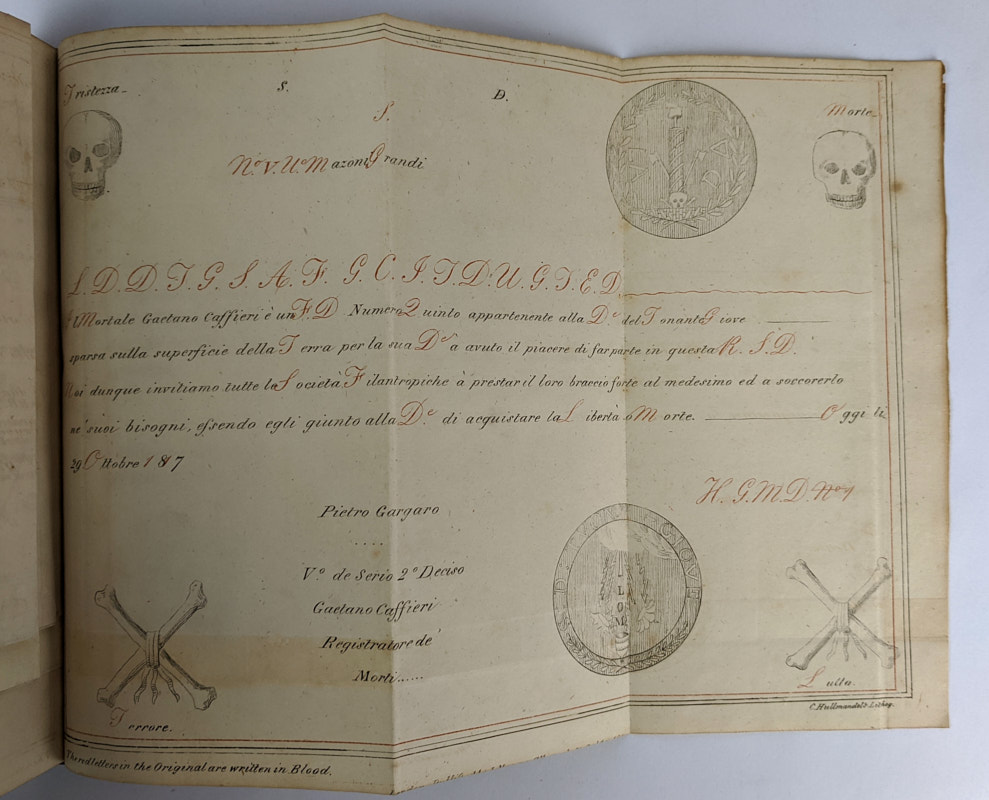 Tristezza
S.
D.
S.
Morte
Nº. V. Uº. Mazoni Grandi
L. D. D. T. G. S. A. F. G. C. I. T. D. U. G. T. E. D.
Il Mortale Gaetano Caffieri è un F. D. Numero Quinto appartenente alla Dᵉ. del Tonante Giove
sparsa sulla superficie della Terra per la sua Dᵉ a avuto il piacere di far parte in questa R. S. D.
Noi dunque invitiamo tutte la Società Filantropiche à prestar il loro braccio forte al medesimo ed a soccorerlo
ne' suoi bisogni, essendo egli giunto alla Dᵉ. di acquistare la Libertà o Morte. Oggi li
29 Ottobre 1817
H. G. M. D. Nº 1
Pietro Gargaro
....
Vº. de Serio 2º Deciso
Gaetano Caffieri
Registratore de'
Morti......
GIOVE
L
O
M
Terrore.
Lutto.
C. Hullmandel's Lithog.
The red letters in the Original are written in Blood.